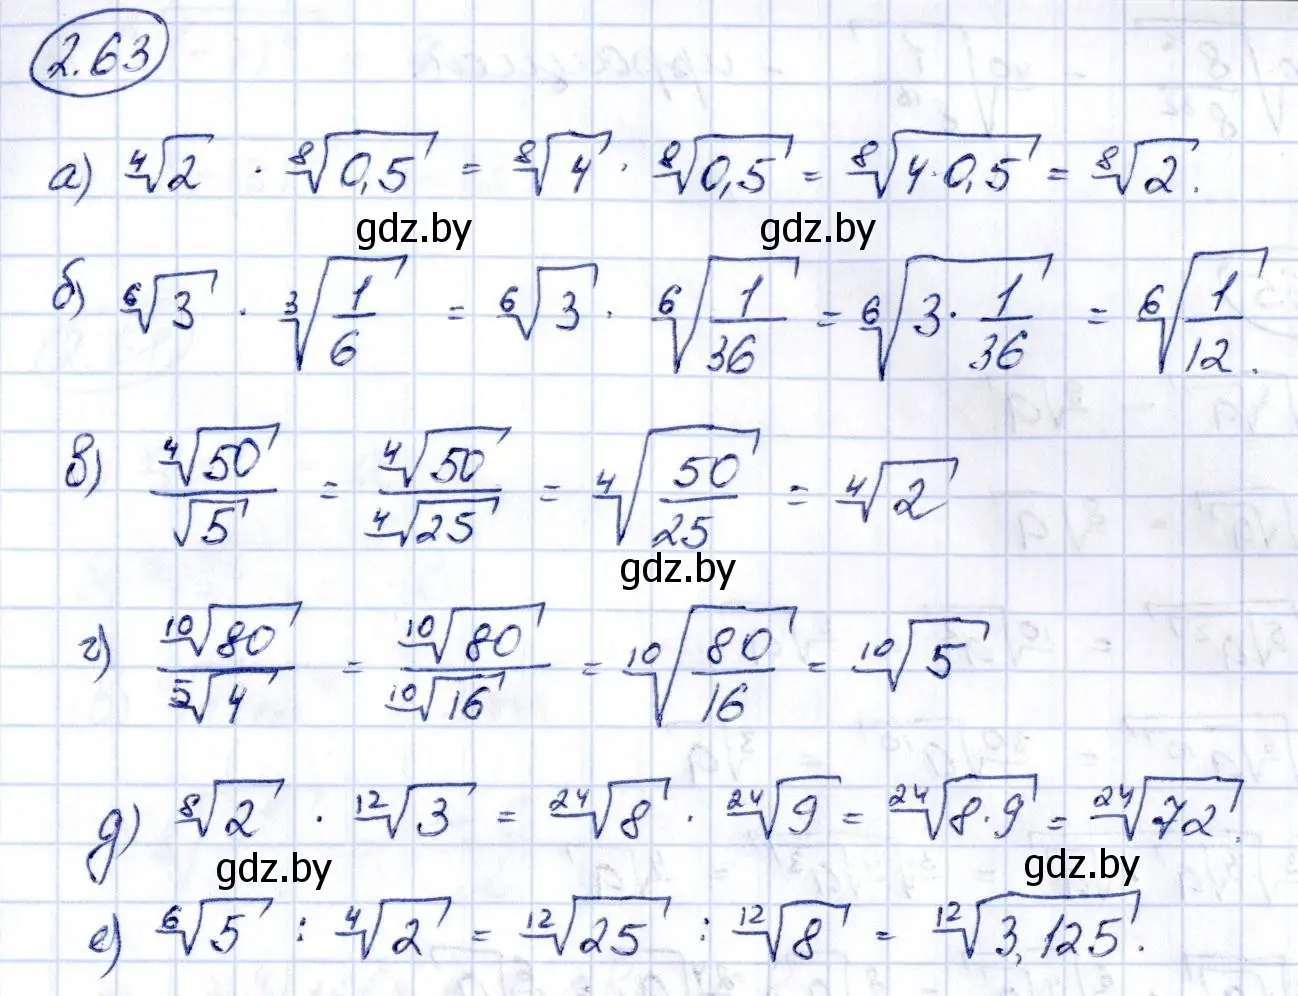 2.63
а) ⁴√2 · ⁸√0,5 = ⁸√4 · ⁸√0,5 = ⁸√(4·0,5) = ⁸√2.
gdz.by gdz.by
б) ⁶√3 · ³√(1/6) = ⁶√3 · ⁶√(1/36) = ⁶√(3 · 1/36) = ⁶√(1/12).
в) ⁴√50/√5 = ⁴√50/⁴√25 = ⁴√(50/25) = ⁴√2
gdz.by
г) ¹⁰√80/⁵√4 = ¹⁰√80/¹⁰√16 = ¹⁰√(80/16) = ¹⁰√5
д) ⁸√2 · ¹²√3 = ²⁴√8 · ²⁴√9 = ²⁴√(8·9) = ²⁴√72.
gdz.by gdz.by
е) ⁶√5 : ⁴√2 = ¹²√25 : ¹²√8 = ¹²√3,125.